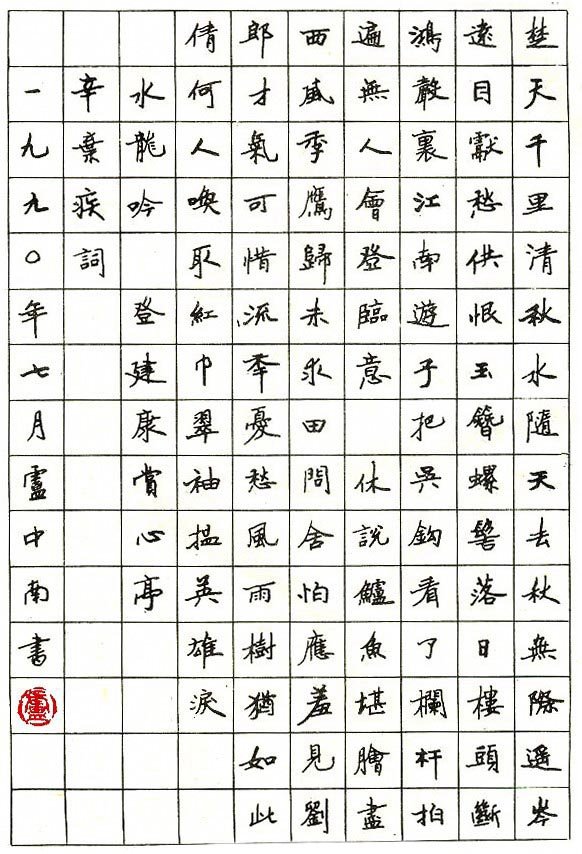 楚天千里清秋水隨天去秋無際遥岑
遠目獻愁供恨玉簪螺髻落日樓頭斷
鴻聲裏江南遊子把吳鈎看了欄杆拍
遍無人會登臨意　休説鱸魚堪膾盡
西風季鷹歸未求田問舍怕應羞見劉
郎才氣可惜流年憂愁風雨樹猶如此
倩何人喚取紅巾翠袖揾英雄淚
水龍吟　登建康賞心亭
辛棄疾詞
一九九〇年七月盧中南書